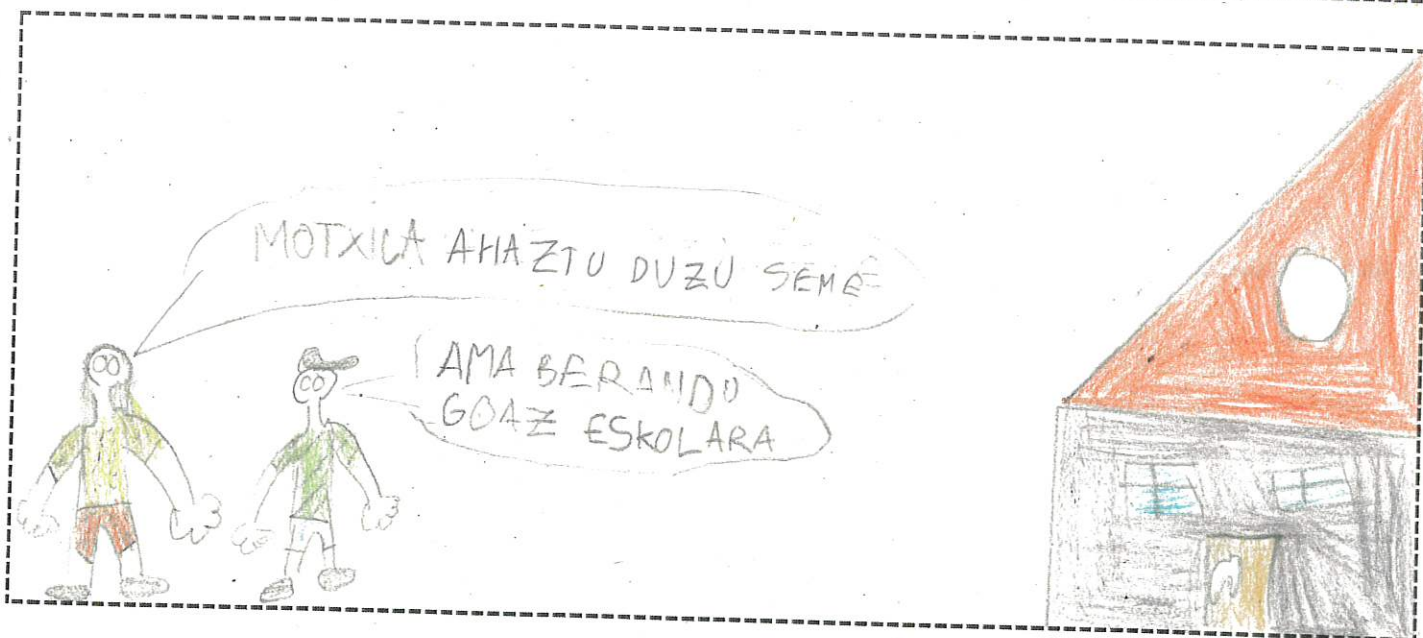 MOTXILA AHAZTU DUZU SEME
AMA BERANDU
GOAZ ESKOLARA